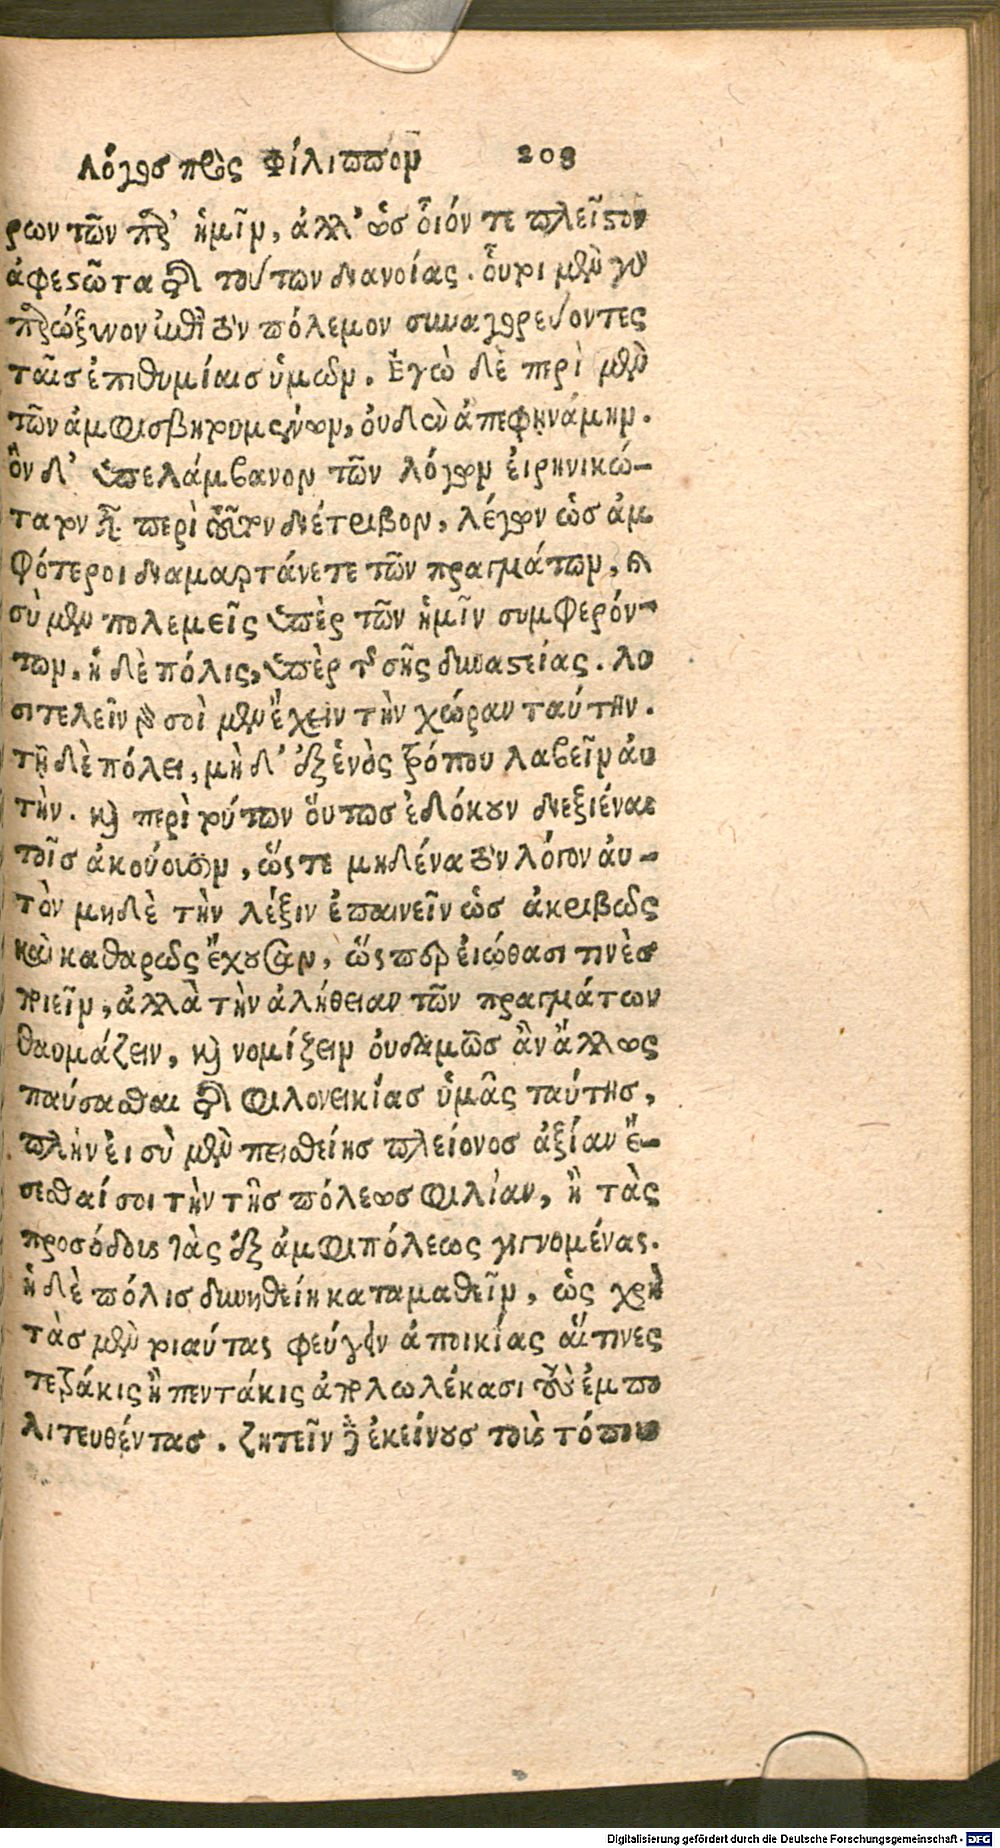 Λόγος πρὸς Φίλιππον 208
ρων τῶν παρ' ἡμῖν, ἀλλ' ὡς οἷόν τε πλεῖστον
ἀφεστῶτα τῆς τούτων διανοίας. οὗτοι μὲν γὰρ
παρώξυνον ἐπὶ τὸν πόλεμον συναγορεύοντες
ταῖς ἐπιθυμίαις ὑμῶν. Ἐγὼ δὲ περὶ μὲν
τῶν ἀμφισβητουμένων, οὐδὲν ἀπεφηνάμην.
ὃν δ' ὑπελάμβανον τῶν λόγων εἰρηνικώ-
τατον εἶναι περὶ τοῦτον διέτριβον, λέγων ὡς ἀμ
φότεροι διαμαρτάνετε τῶν πραγμάτων, καὶ
σὺ μὲν πολεμεῖς ὑπὲρ τῶν ἡμῖν συμφερόν-
των, ἡ δὲ πόλις, ὑπὲρ τῆς σῆς δυναστείας. λυ
σιτελεῖν γὰρ σοὶ μὲν ἔχειν τὴν χώραν ταύτην.
τῇ δὲ πόλει, μὴ δ' ἐξ ἑνὸς τρόπου λαβεῖν αὐ
τὴν. καὶ περὶ τούτων οὕτως ἐδόκουν διεξιέναι
τοῖς ἀκούουσιν, ὥστε μηδένα τὸν λόγον αὐ-
τὸν μηδὲ τὴν λέξιν ἐπαινεῖν ὡς ἀκριβῶς
καὶ καθαρῶς ἔχουσαν, ὥσπερ εἰώθασι τινὲς
ποιεῖν, ἀλλὰ τὴν ἀλήθειαν τῶν πραγμάτων
θαυμάζειν, καὶ νομίζειν οὐδαμῶς ἂν ἄλλως
παύσασθαι τῆς φιλονεικίας ὑμᾶς ταύτης,
πλὴν εἰ σὺ μὲν πεισθείης πλείονος ἀξίαν ἔ-
σεσθαί σοι τὴν τῆς πόλεως φιλίαν, ἢ τὰς
προσόδους τὰς ἐξ ἀμφιπόλεως γιγνομένας.
ἡ δὲ πόλις δυνηθείη καταμαθεῖν, ὡς χρὴ
τὰς μὲν τοιαύτας φεύγειν ἀποικίας αἵτινες
τετράκις ἢ πεντάκις ἀπολωλέκασι τοὺς ἐμπο
λιτευθέντας. ζητεῖν δὲ ἐκείνους τοὺς τόπους
Digitalisierung gefördert durch die Deutsche Forschungsgemeinschaft - DFG